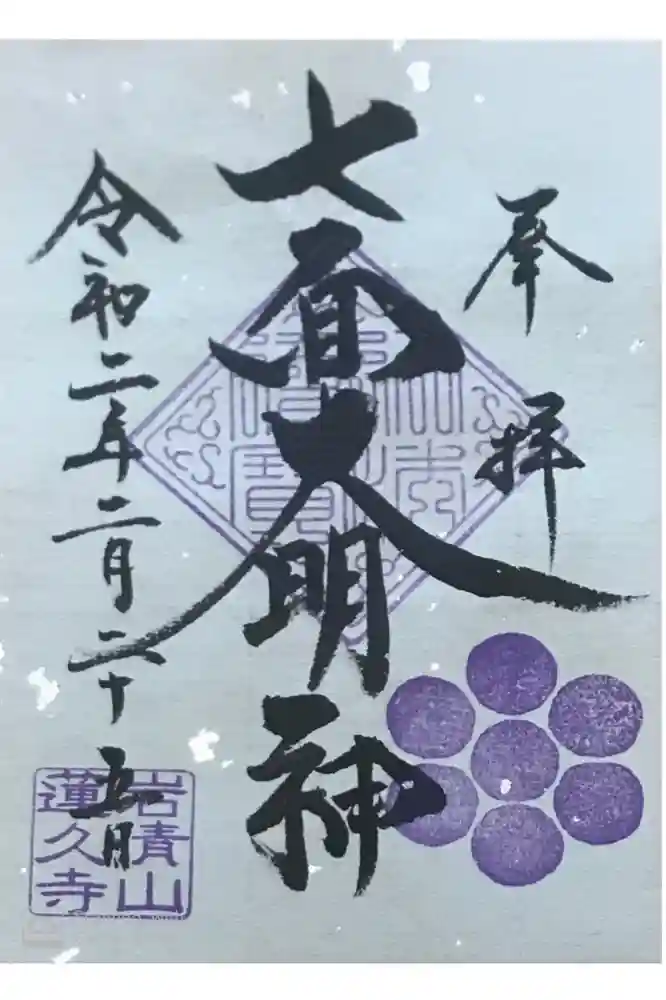 奉拝
七面大明神
令和二年二月二十五日
岩清山
蓮久寺